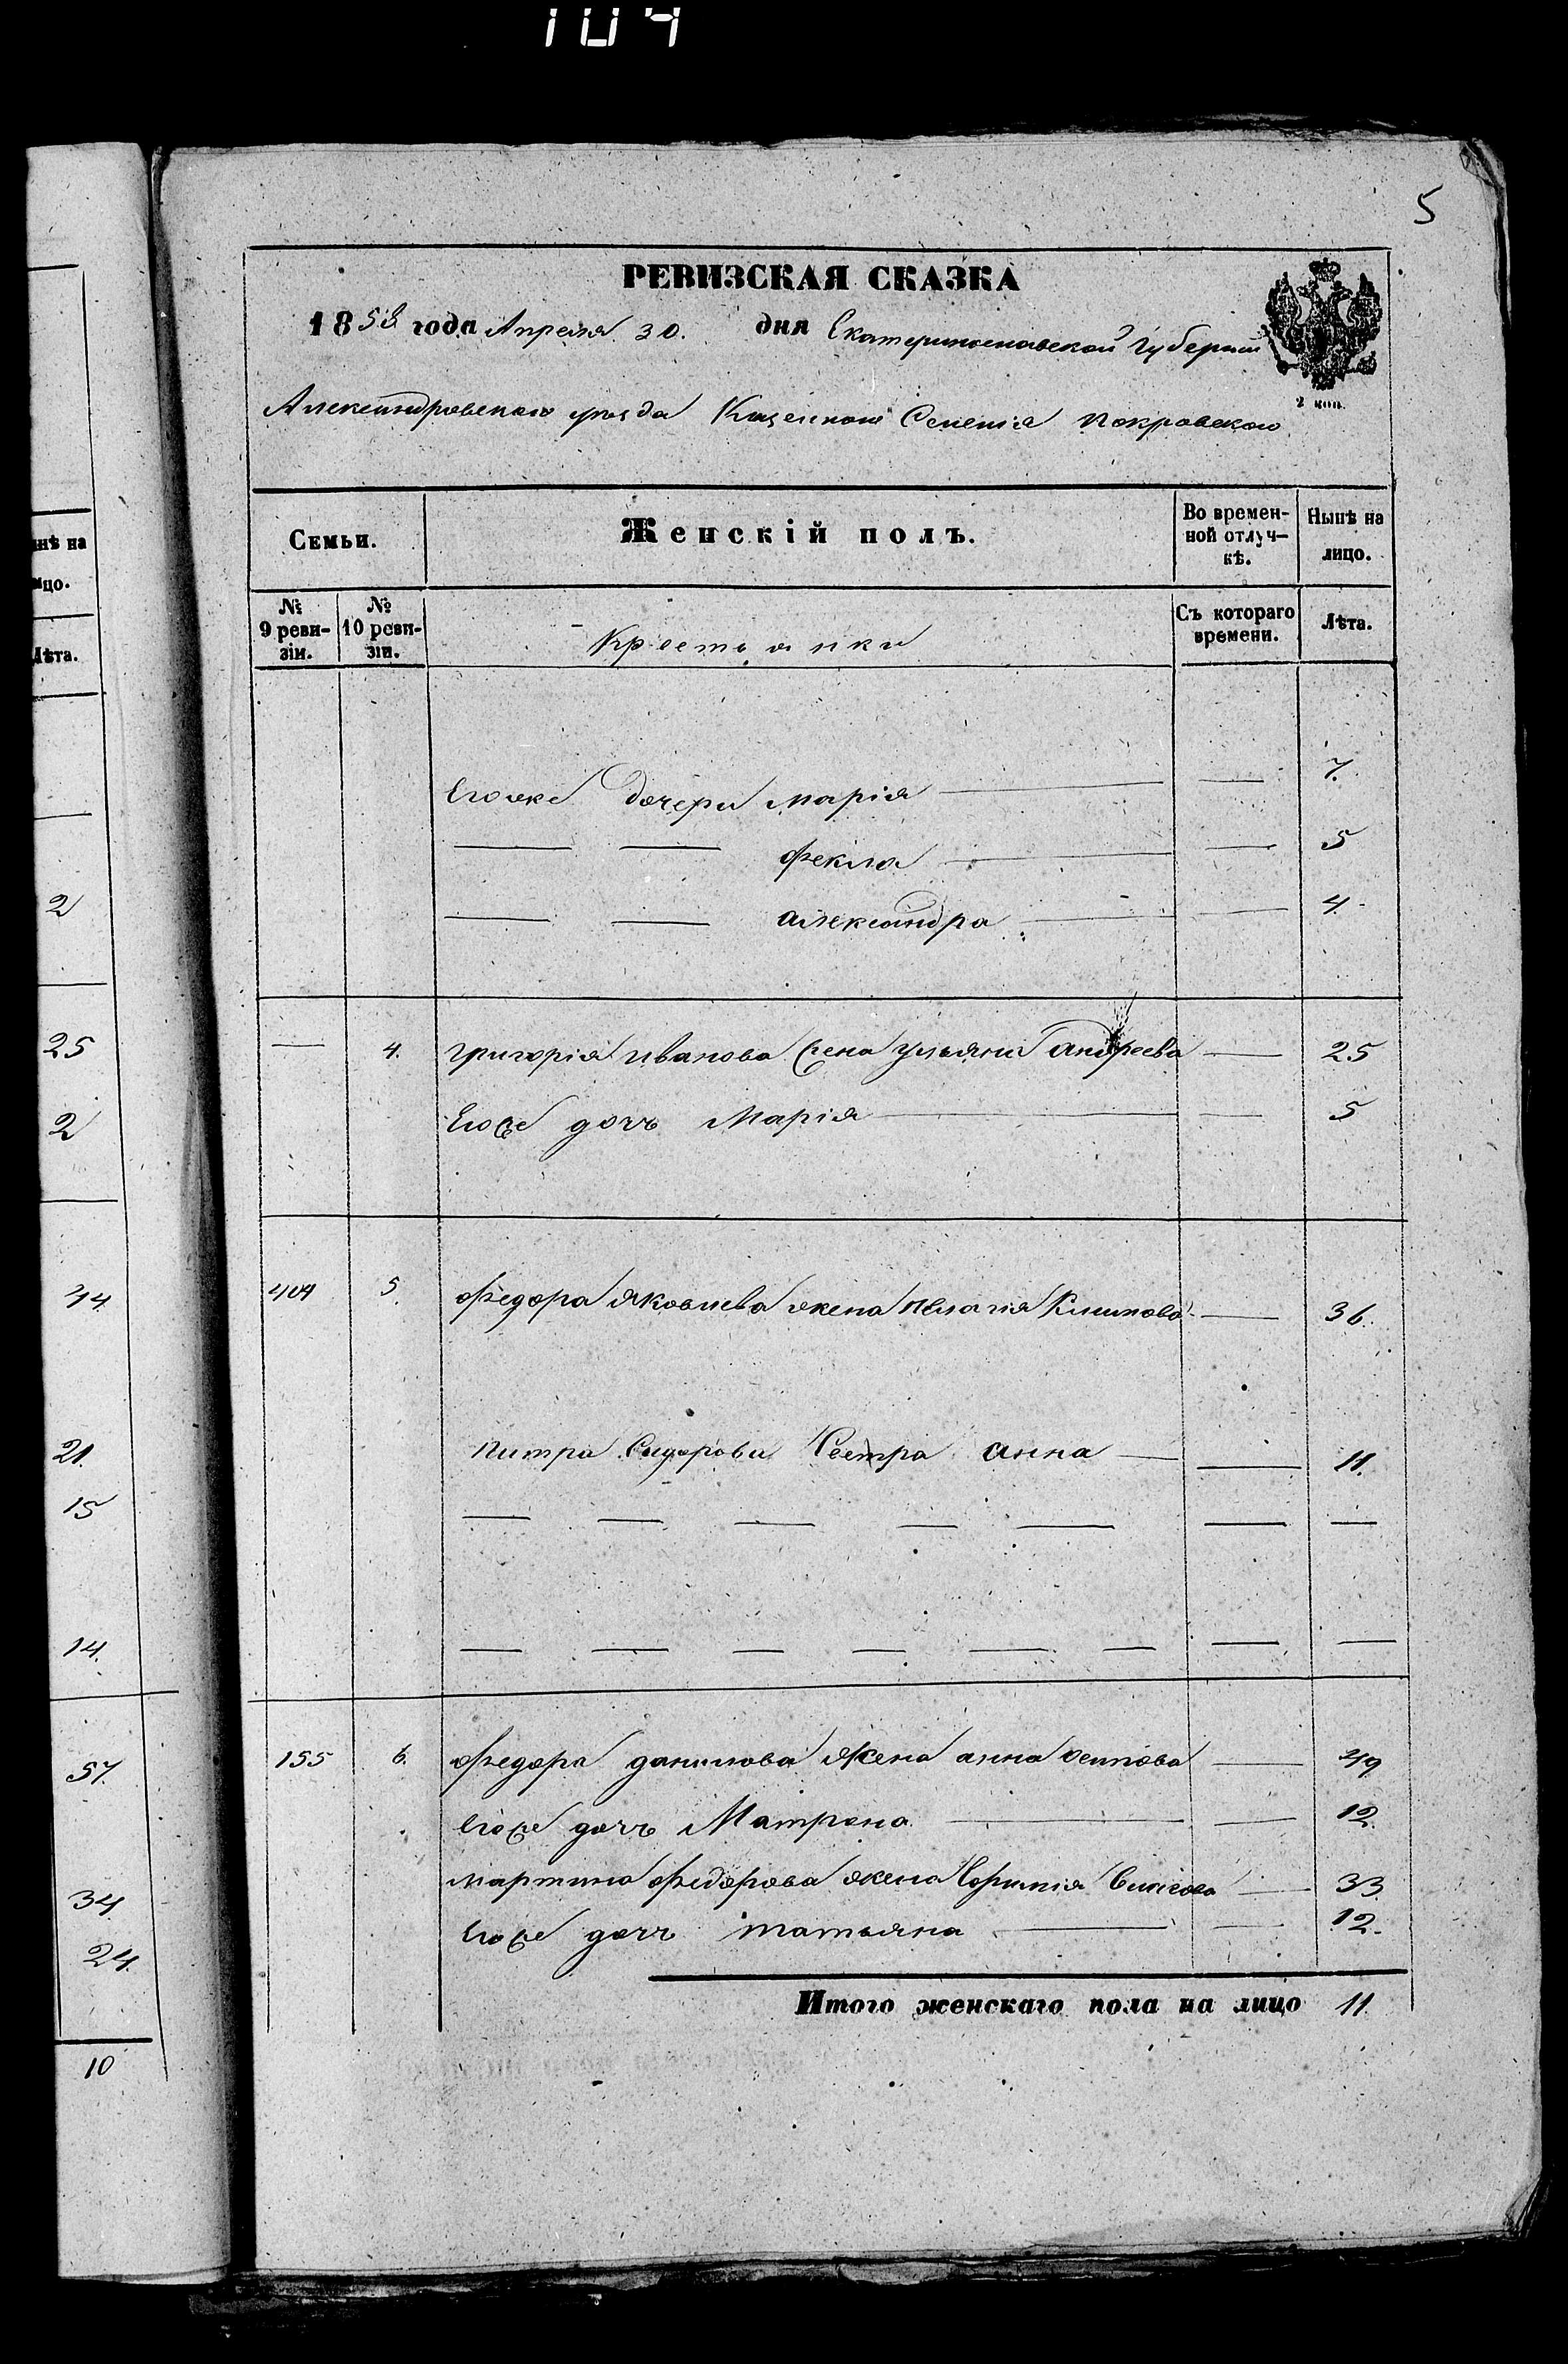 104
5
РЕВИЗСКАЯ СКАЗКА
1858 года Апреля 30. дня Екатеринославской Губернии
2 коп.
Александровского уезда Казенного Селения Покровского
Семьи. Женскій полъ. Во времен-ной отлуч-кѣ. Нынѣ на лицо.
№ 9 реви-зіи. № 10 реви-зіи. Крестьянки Съ котораго времени. Лѣта.
Егоже дочери Марія — — 7.
— — Фекла — — 5
— — Александра — — 4.
— 4. Григорія Иванова жена Ульяна Андреева — 25
Егоже дочь Марія — — 5
404 5. Федора Яковлева жена Пелагія Климова — 36.
Питра Сидорова Сестра Анна — — 11.
— — — — — — —
— — — — — — — —
155 6. Федора Данилова Жена Анна Осипова — 49
Егоже дочь Матрона — — 12.
Мартина Федорова жена — 33
Егоже дочь Татьяна — — 12.
Итого женскаго пола на лицо 11.
нѣ на
ицо.
Лѣта.
2
25
2
44.
21.
15
14.
57.
34
24.
10